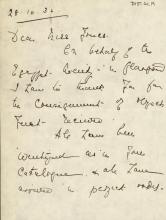 28.10.34
Dear Miss Jones
On behalf of the
Egypt Society in Glasgow
I have to thank you for
the Consignment of objects
just received
All have been
identified as in your
Catalogue, & all have
arrived in perfect order.